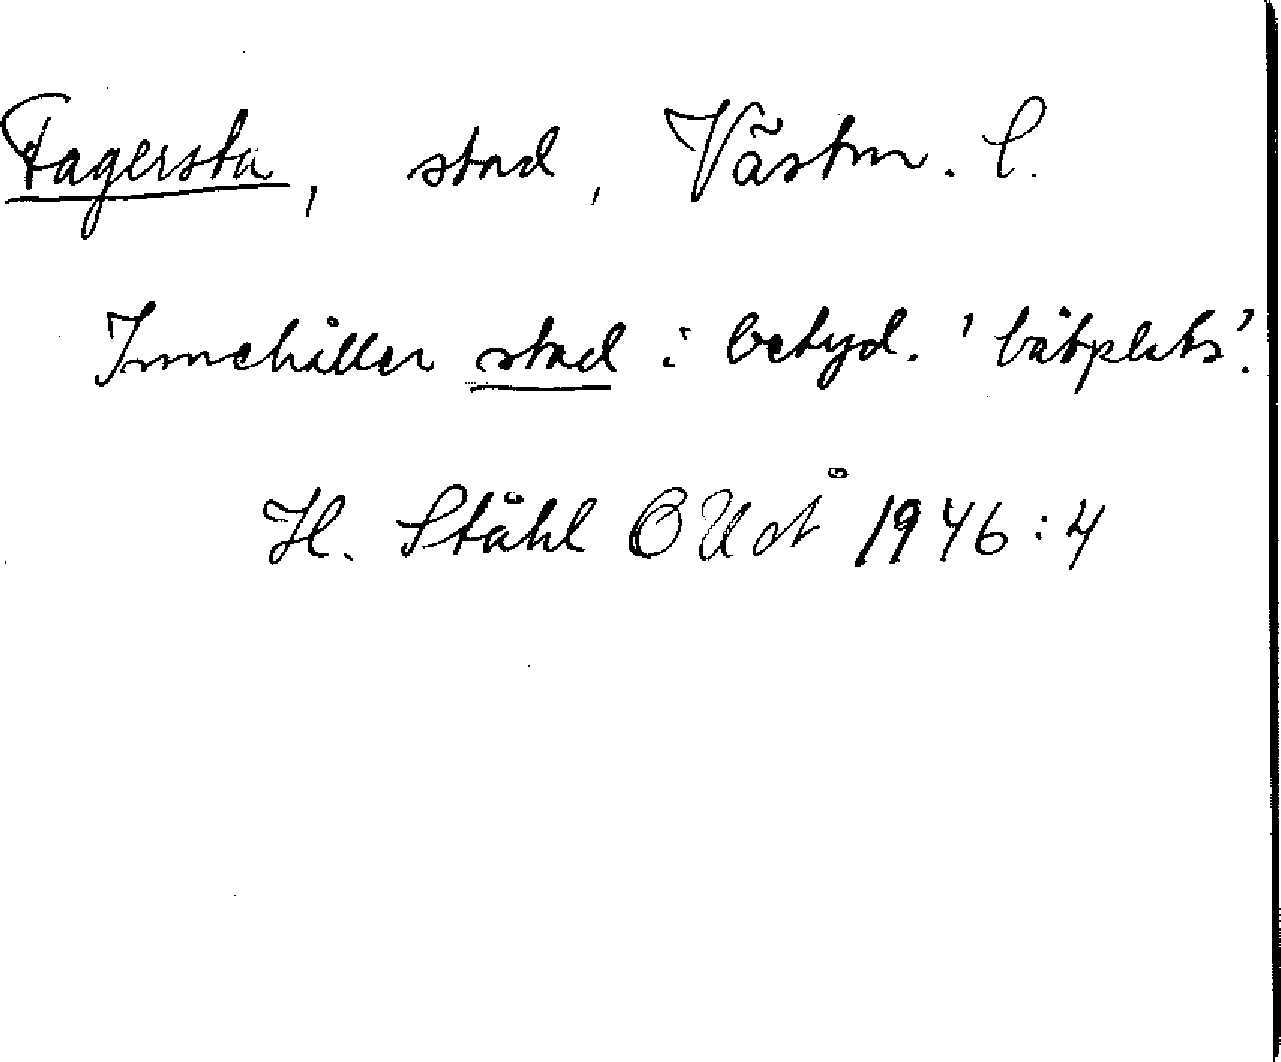 Fagersta, stad, Västm. l.
Innehåller stad i betyd. 'båtplats'.
H. Ståhl OUÅ 1946:4